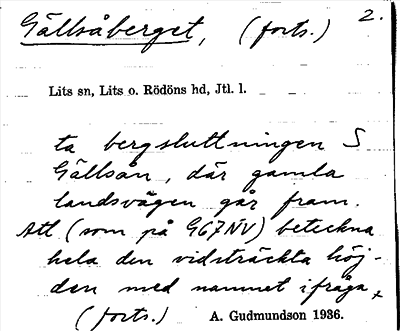 2.
Gällsåberget, (forts.)
Lits sn, Lits o. Rödöns hd, Jtl. l.
ta bergsluttningen S
Gällsån, där gamla
landsvägen går fram.
Att (som på GG7NV) beteckna
hela den vidsträckta höj-
den med namnet ifråga
(forts.) A. Gudmundson 1936.